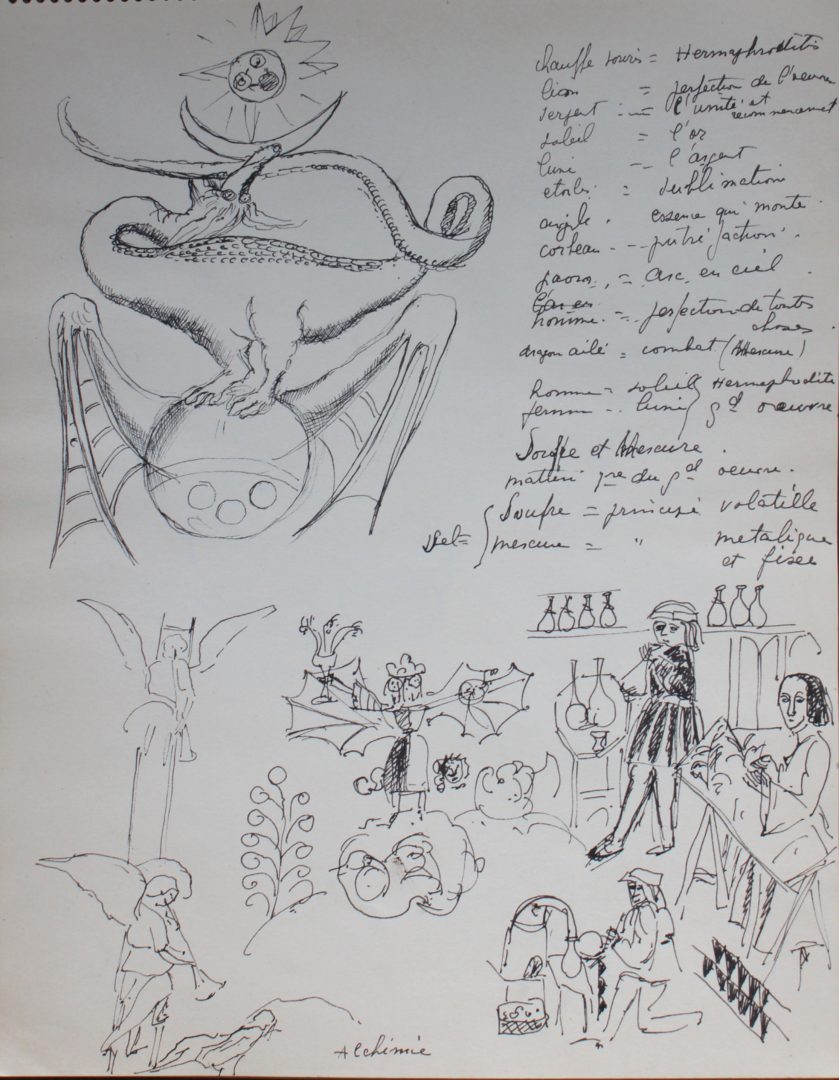 chauffe souris = Hermaphroditis
lion = perfection de l'oeuvre
serpent = l'unité et
recommencement
soleil = l'or
lune = l'argent
etoiles = sublimation
aigle . essence qui monte .
corbeau - putréfaction .
paon = arc en ciel .
homme = perfection de toutes
choses .
dragon ailé = combat (Mercure)
homme = soleil } Hermaphodite
femme = lune } gd oeuvre
Soufre et Mercure .
matiere 1re du gd oeuvre .
Sel = { Soufre = principe volatille
mercure = " metalique
et fixee
Alchimie